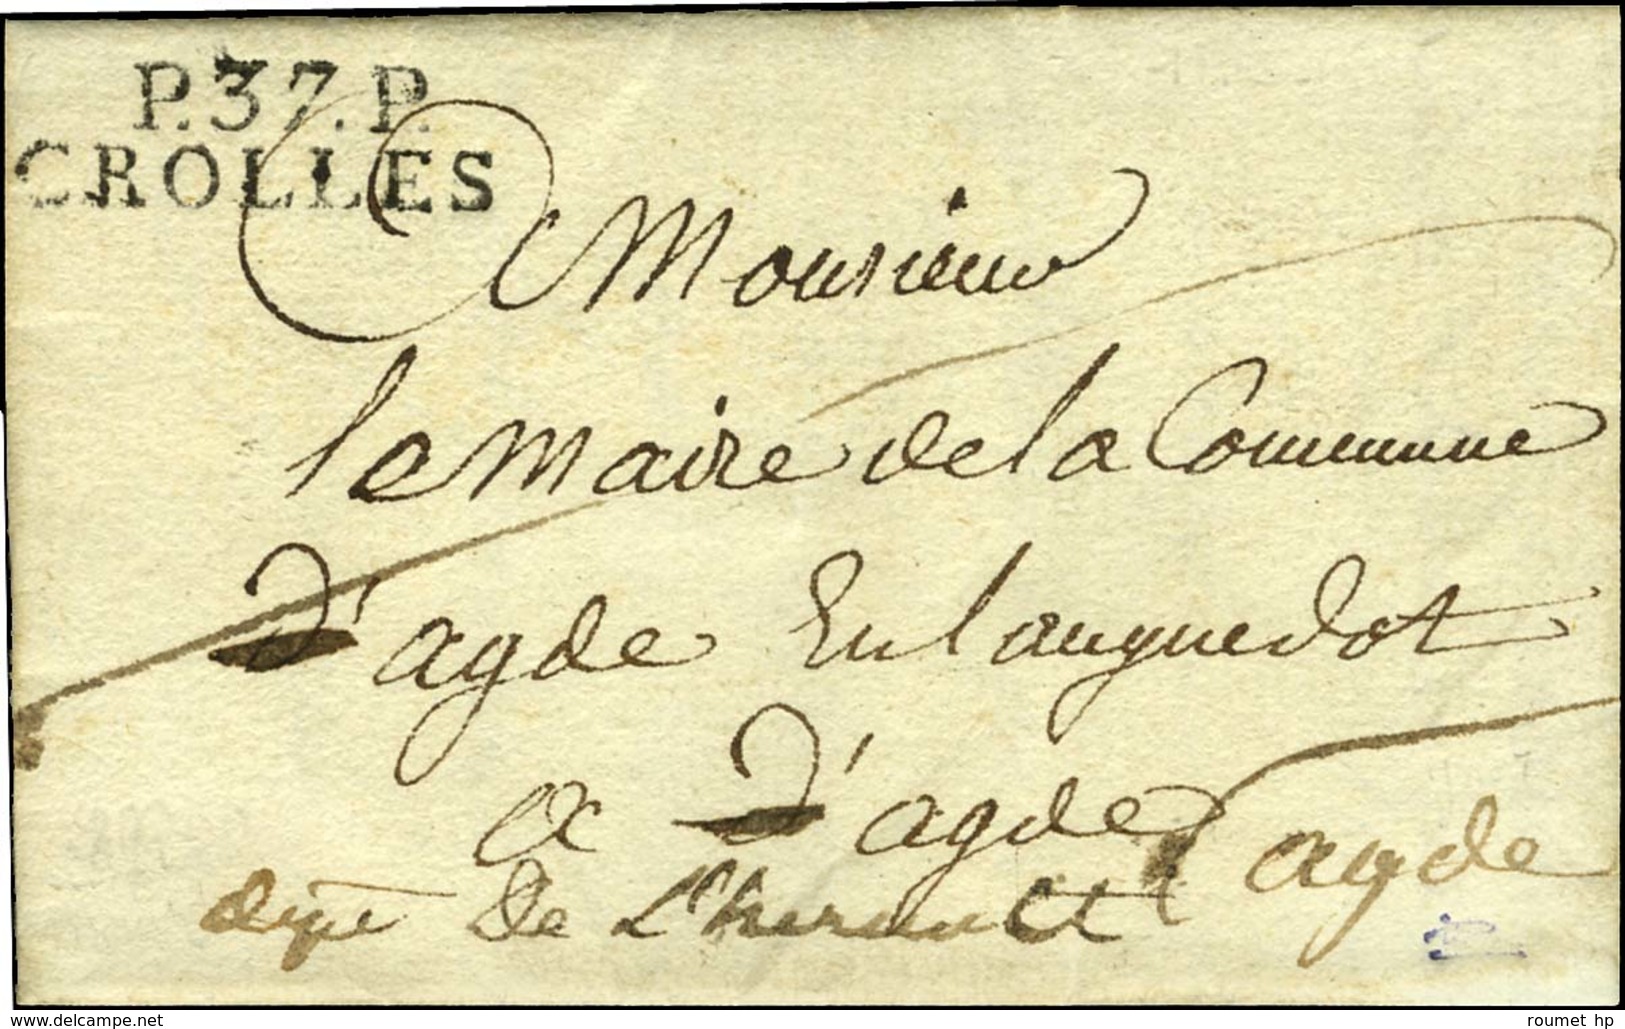 P.37.P.
CROLLES
Monsieur
le maire de la Commune
D'agde En languedot
a D'agde agde
dept De L'herault
www.delcampe.net
roumet hp